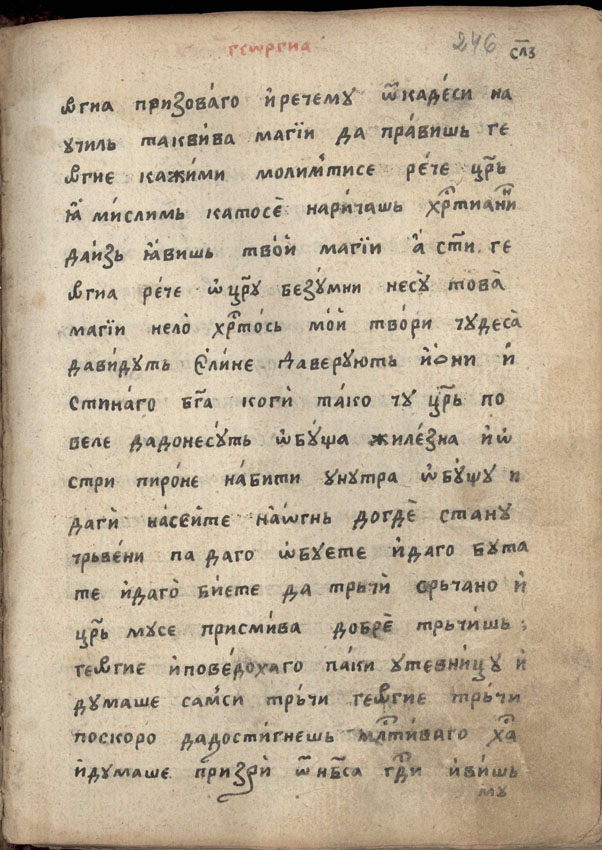 геѡргиа 246 сл҃з
ѡгиа призова́го и́ речему ѿкаде́си на
училь таквива магїи да пра́вишь ге
ѡгие кажи́ми моли́мтисе ре́че цр҃ь
ꙗ҆ ми́слимь катосѐ нари́чашь хрⷭ҇тиани́н
даи́зь ꙗ҆вишь тво́й магїи а҆ ст҃и ге
ѡгиа ре́че ѽ цр҃у безу́мни несу̀ това̀
магїи нело̀ хрⷭ҇тось мо́й тво́ри чудеса̀
дави́дуть е҆ли́не даверую́ть и҆ѻни и҆
стина́го бг҃а коги̇̀ та́ко чу цр҃ь по
веле дадонесу́ть ѡ҆бу́ща жиле́зна и҆ѡ҆
стри пиро́не на́бити у҆нутра ѡ҆бу́щу и
даги̇̀ насве́те на́ѡгнь догдѐ стану
трьве́ни па даго ѡ҆буете и҆даго бута
те и҆даго̀ би́ете да трьчи̇̀ срьчано и҆
цр҃ь мусе присми́ва добрѐ трьчи́шь ;
геѡгие и҆пове́дохаго па́ки у҆тевни́цу и҆
ду́маше са́мси трь́чи геѡ́гие трь́чи
поскоро дадости́гнешь млⷭ҇тиваго ха҃
и҆думаше призри̇̀ ѿ нб҃са гдⷭ҇и и҆вишь
му